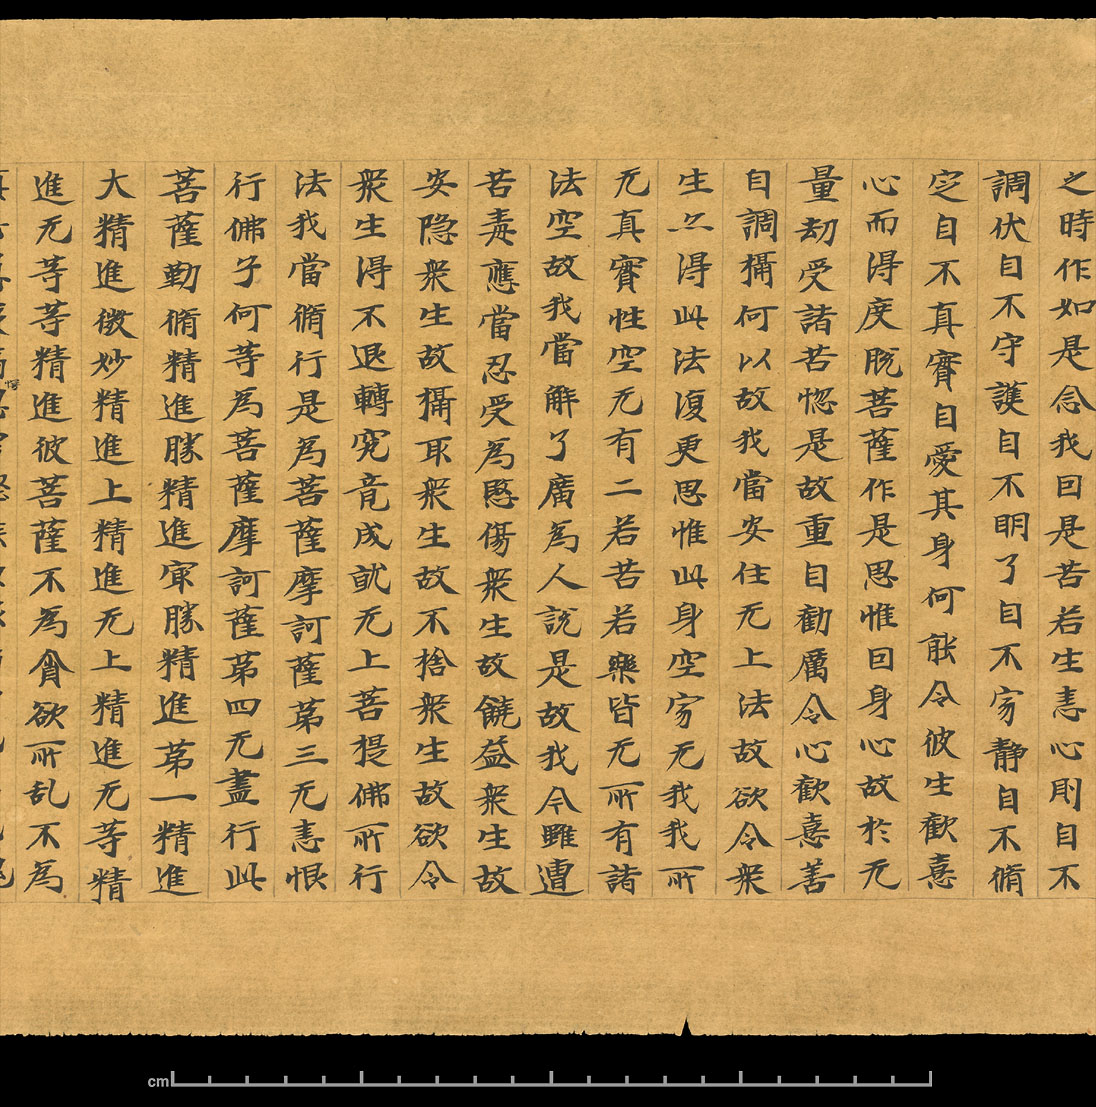 之時作如是念我因是苦若生恚心則自不
調伏自不守護自不明了自不寂静自不脩
定自不真實自愛其身何能令彼生歡憙
心而得度脫菩薩作是思惟因身心故於无
量劫受諸苦惚是故重自勸厲令心歡憙善
自調攝何以故我當安住无上法故欲令衆
生亦得此法復更思惟此身空寂无我我所
无真實性空无有二若苦若樂皆无所有諸
法空故我當解了廣為人說是故我今雖遭
苦毒應當忍受為愍傷衆生故饒益衆生故
安隐衆生故攝取衆生故不捨衆生故欲令
衆生得不退轉究竟成就无上菩提佛所行
法我當脩行是為菩薩摩訶薩苐三无恚恨
行佛子何等為菩薩摩訶薩苐四无盡行此
菩薩勤脩精進勝精進冣勝精進苐一精進
大精進微妙精進上精進无上精進无等精
進无等等精進彼菩薩不為貪欲所乱不為